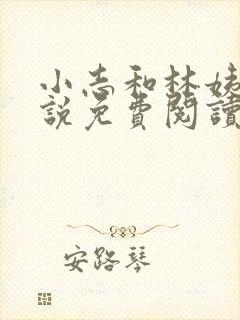 小志和林姊
說免費閱讀
安路琴